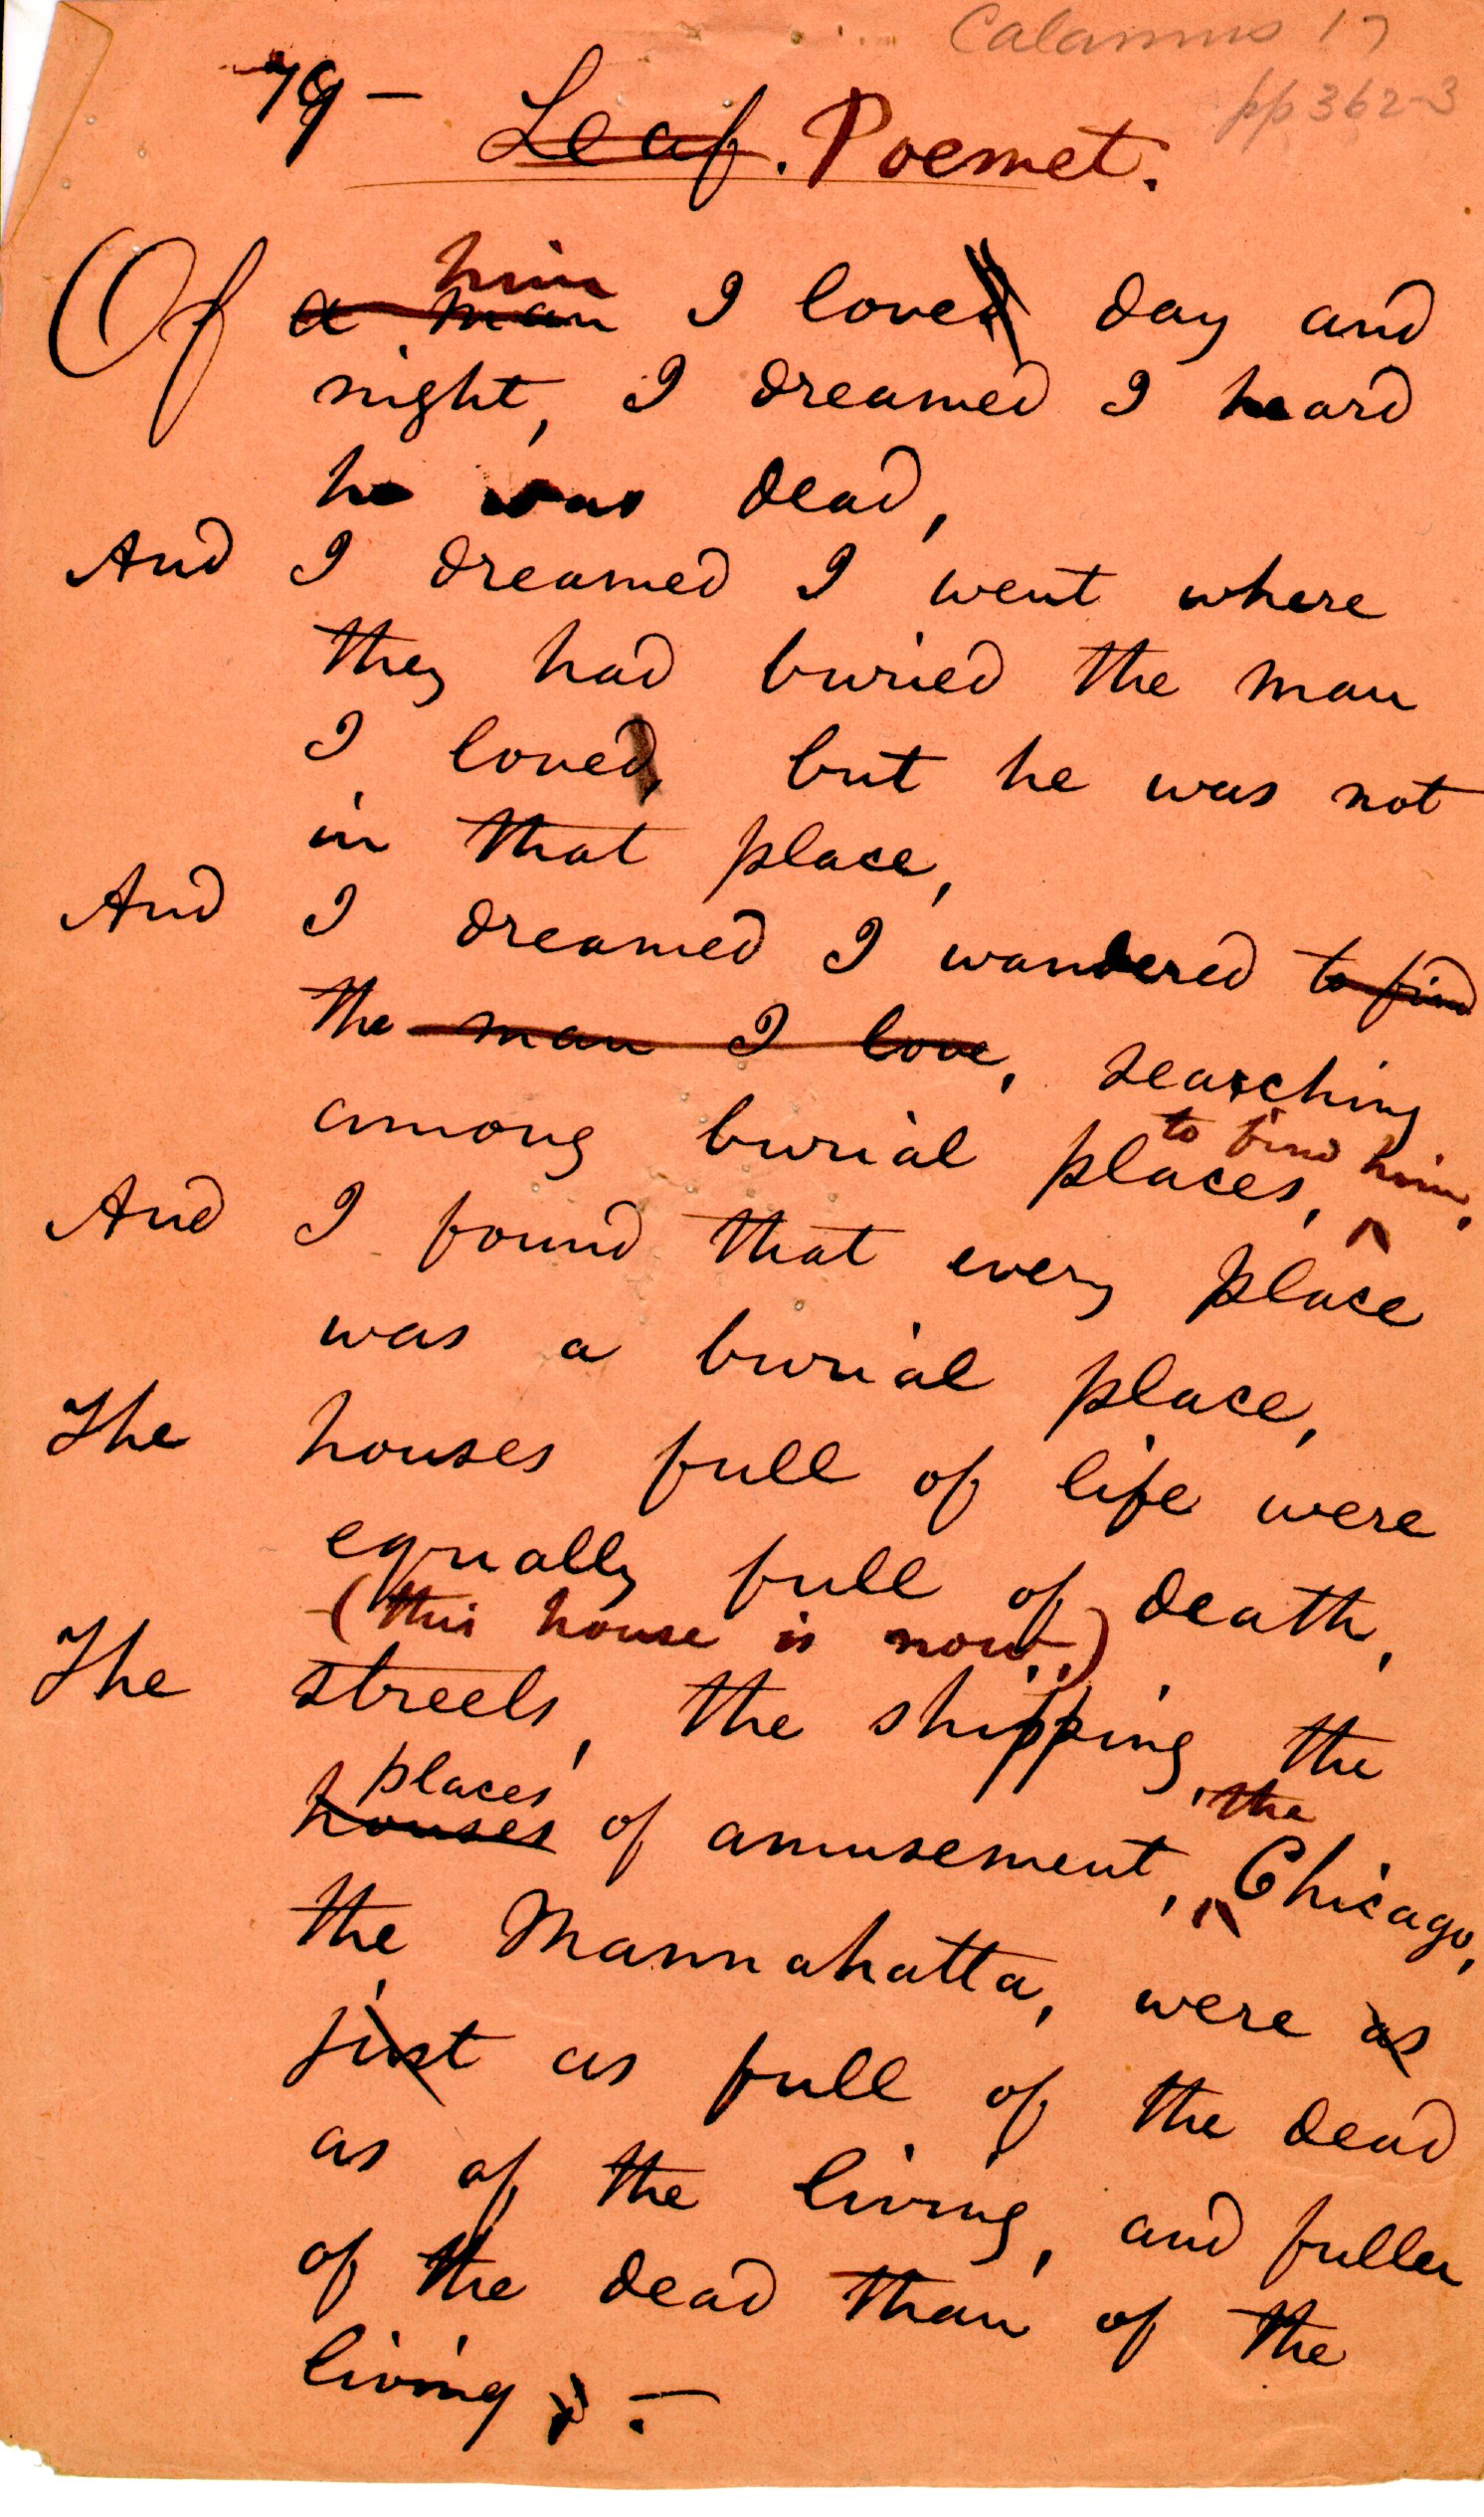 Calamus 17
pp 362-3
79 — Leaf. Poemet.
him
Of a man I loved day and
night, I dreamed I heard
he was dead,
And I dreamed I went where
they had buried the man
I loved, but he was not
in that place,
And I dreamed I wandered to find
the man I love, searching
to find him,
among burial places, ^
And I found that every place
was a burial place,
The houses full of life were
equally full of death,
(this house is now.)
The streets, the shipping, the
places the
houses of amusement, ^ Chicago,
the Mannahatta, were as
just as full of the dead
as of the living, and fuller
of the dead than of the
living. —